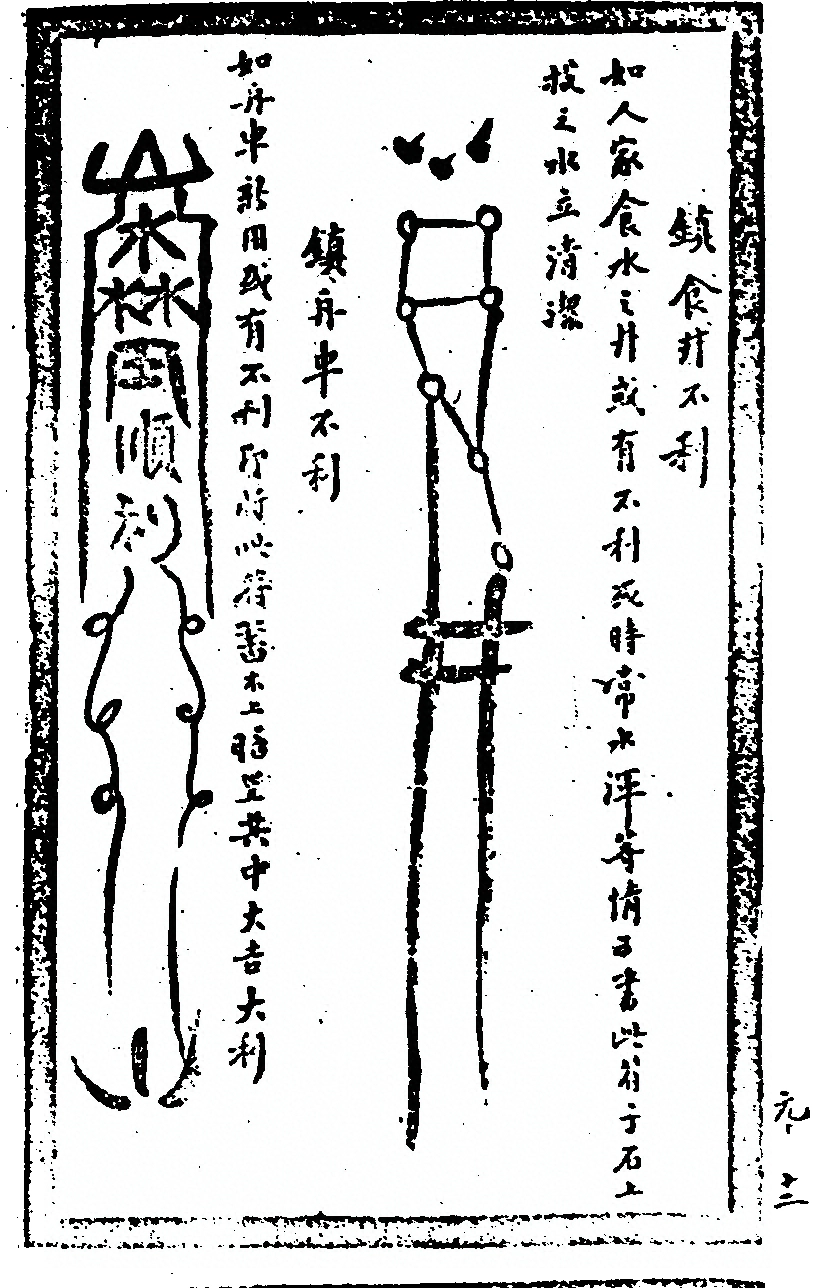 鎮食井不利
如人家食水之井或有不利或時常水渾等情可書此符于石上
投之水立清潔
鎮舟車不利
如舟車新用或有不利即將此符畫木上暗置其中大吉大利
木
林
順
利